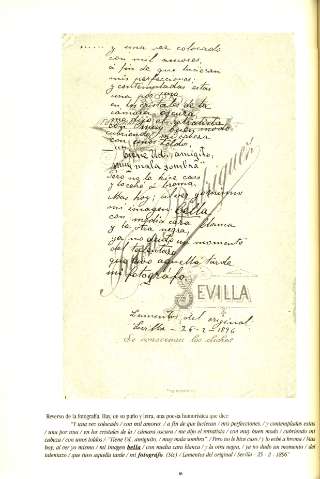 ...... y una vez colocado
con mil amores,
á fin de que lucieran
mis perfecciones;
y contempladas estas
una por una
en los cristales de la
cámara oscura
me dijo el retratista
con muy buen modo
cubriendo mi cabeza
con unos toldo.
"Tiene Vd. amigito,
muy mala sombra"
Pero no le hice caso
y lo echó á broma.
Mas hoy; al ver yo mismo
mi imagen bella
con media cara blanca
y la otra negra,
ya no dudo un momento
del talentazo
que tuvo aquella tarde
mi fotógrafo.
SEVILLA
Lamentos del original
Sevilla - 25 - 2 - 1896
Se conservan los clichés
Reverso de la fotografía. Hay, en su puño y letra, una poesía humorística que dice:
"Y una vez colocado / con mil amores / a fin de que lucieran / mis perfecciones, / y contempladas estas
/ una por una / en los cristales de la / cámara oscura / me dijo el retratista / con muy buen modo / cubriendo mi
cabeza / con unos toldos / "Tiene Ud. amigito, / muy mala sombra" / Pero no le hice caso / y lo eché a broma / Mas
hoy, al ver yo mismo / mi imagen bella / con media cara blanca / y la otra negra, / ya no dudo un momento / del
talentazo / que tuvo aquella tarde / mi fotógrafo (Sic) / Lamentos del original / Sevilla - 25 - 2 - 1896"